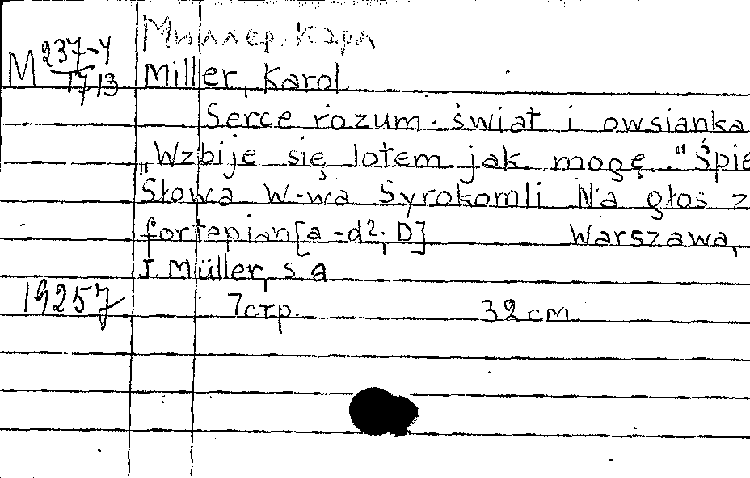 Миллер, Карл
М 237-4
1713
Miller, Karol
Serce rozum. świat i owsianka
„Wzbije się lotem jak mogę" Śpie
Słowa W-wa Syrokomli Na głos z
fortepian[a -d²; D] Warszawa,
J. Müller, s a
19257 7стр. 32 cm